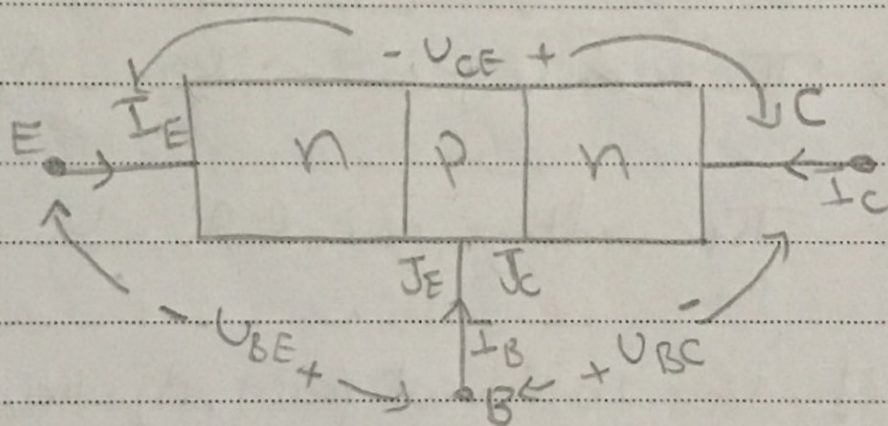 - U_CE +
E I_E n p n C
I_C
J_E J_C
- U_BE + I_B - + U_BC
B